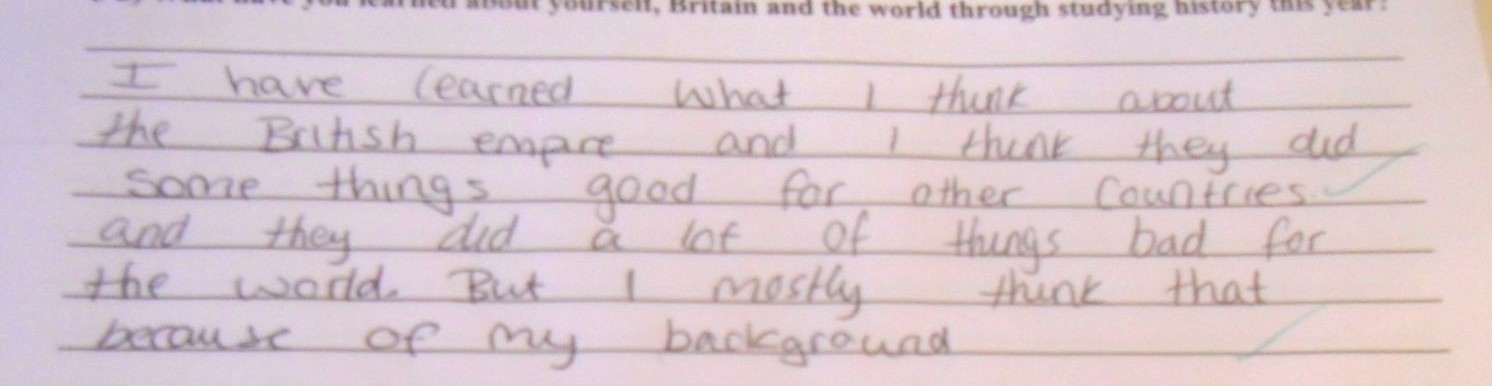 you learned about yourself, Britain and the world through studying history this year?
I have learned what I think about
the British empire and I think they did
some things good for other countries
and they did a lot of things bad for
the world. But I mostly think that
because of my background